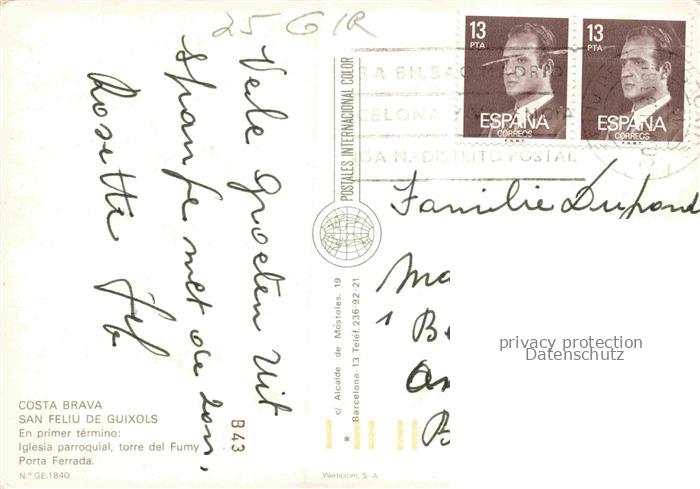 25 GIR
Vele Groeten Uit
Spanje met de zon,
Rosette
COSTA BRAVA
SAN FELIU DE GUIXOLS
En primer término:
Iglesia parroquial, torre del Fumy
Porta Ferrada.
N.º GE.1840
B43
POSTALES INTERNACIONAL COLOR
c/ Alcalde de Móstoles, 19
Barcelona-13 Teléf. 236-92-21
*
Werticrom, S. A.
13 PTA
ESPAÑA
CORREOS
F.N.M.T.
13 PTA
ESPAÑA
CORREOS
F.N.M.T.
RA BILBAO MADRID
CELONA
GA N.º DISTRITO POSTAL
Familie Dupond
privacy protection
Datenschutz